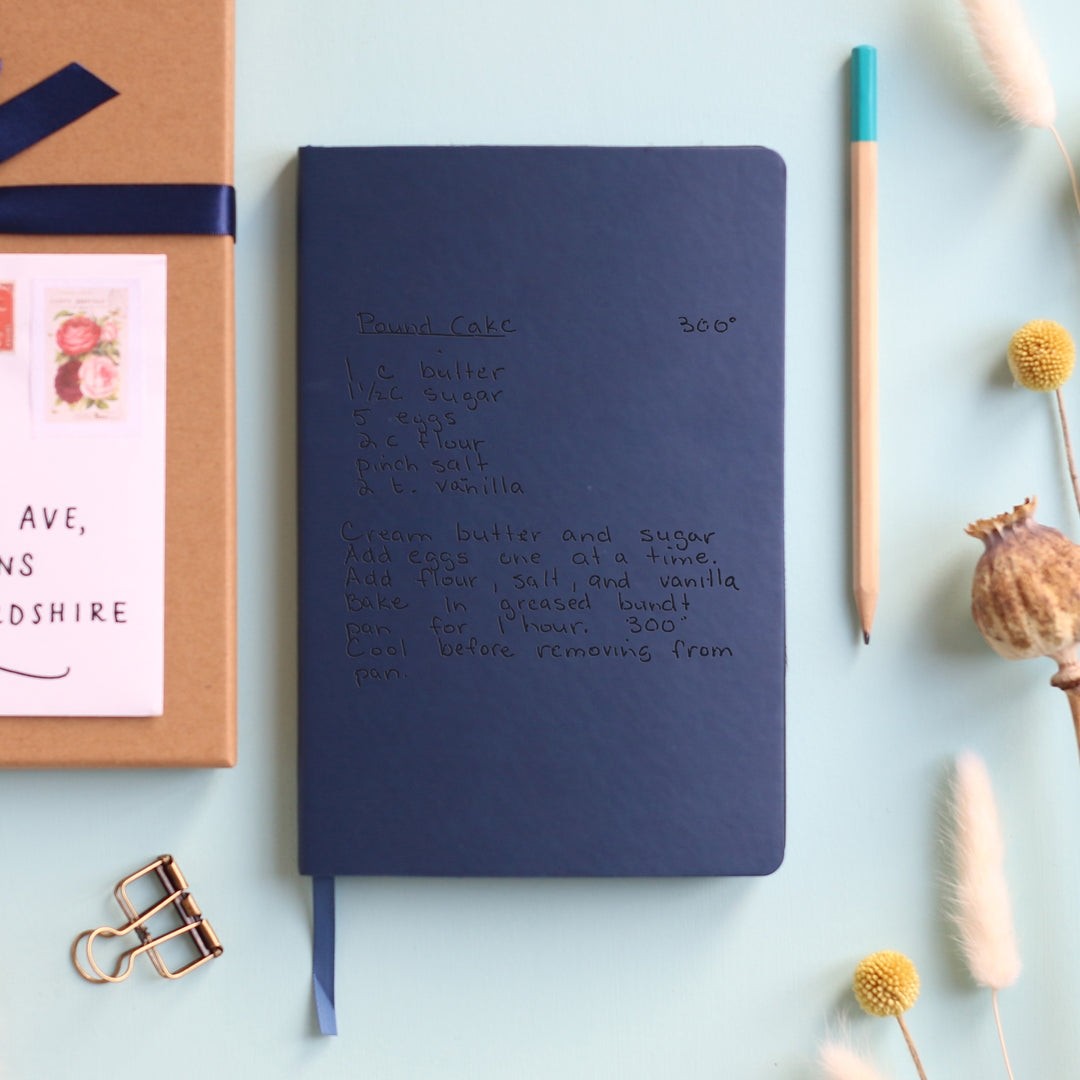 Pound Cake 300°
1 c butter
1 1/2 c sugar
5 eggs
2 c flour
pinch salt
2 t. vanilla
Cream butter and sugar
Add eggs one at a time.
Add flour, salt, and vanilla
Bake in greased bundt
pan for 1 hour. 300°
Cool before removing from
pan.
AVE,
NS
RDSHIRE